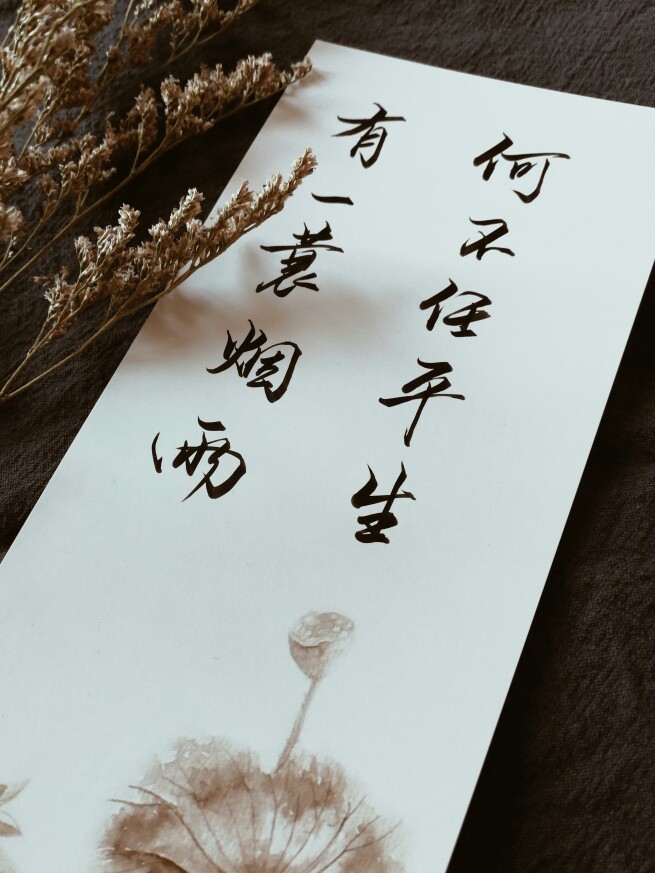 何不任平生
有一蓑烟雨